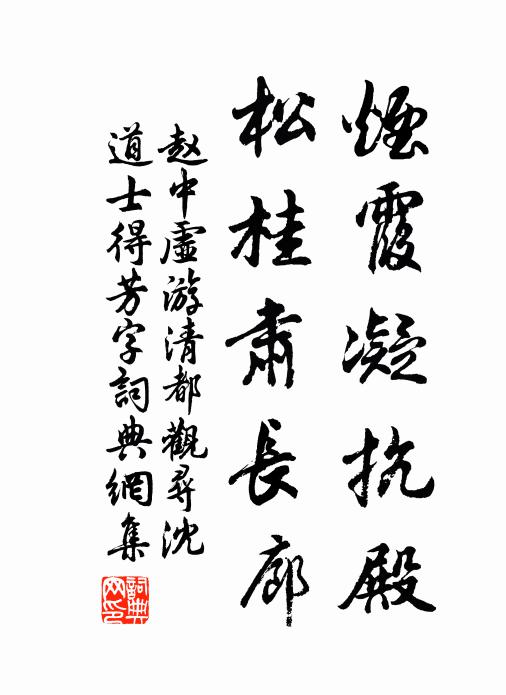 煙霞凝抗殿
松桂肅長廊
赵中虛游清都觀尋沈
道士得芳字詞典網集
詞典網印